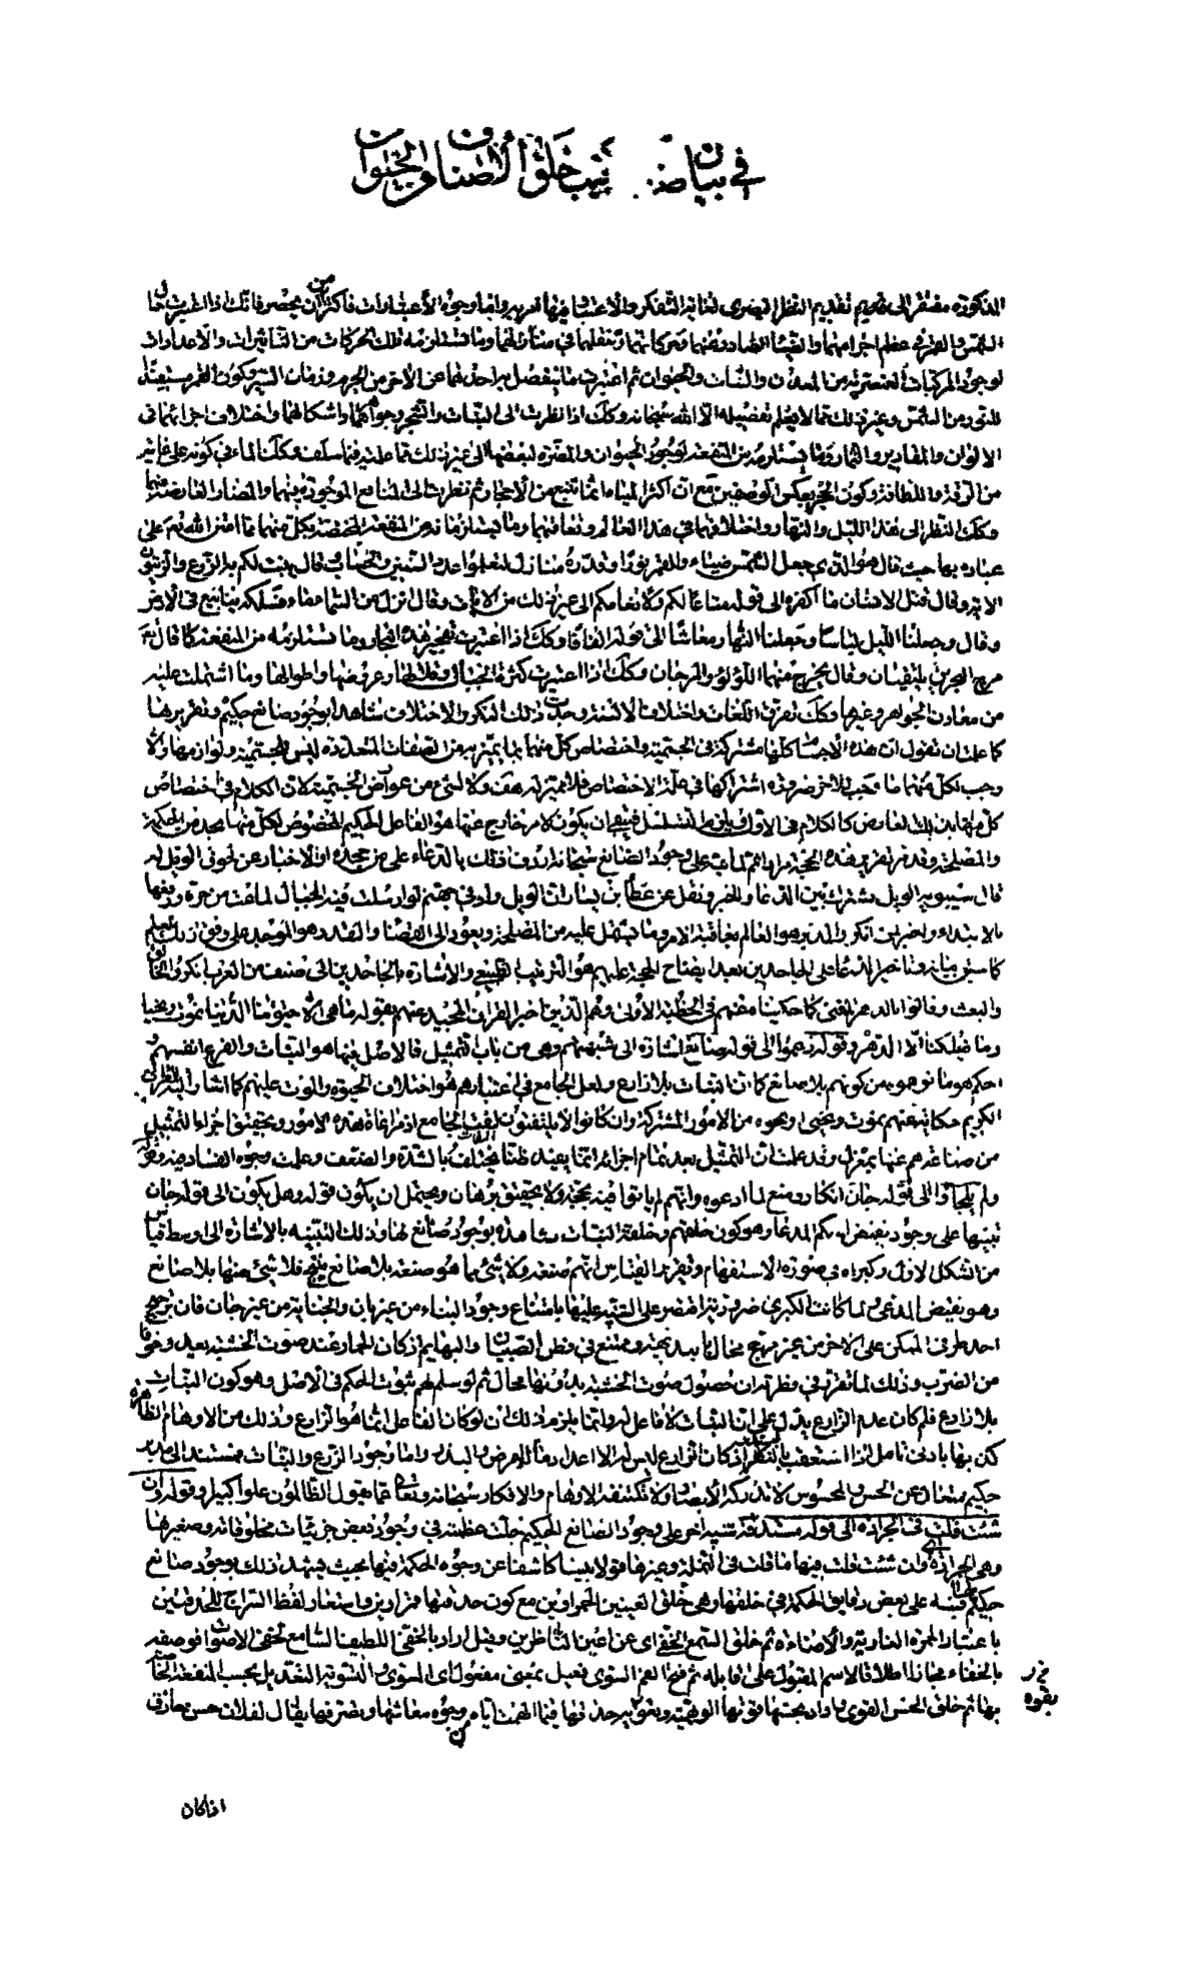 في بيان خلق أصناف الحيوان
المذكورة مفتقر الى تقديم النظر البصرى لغاية التفكر والاعتبار فيها وأما وجوه الاعتبارات فاكثر من أن يحصر فانك اذا اعتبرت حال
الشمس والقمر في عظم اجرامهما والضياء الصادر عنهما وحركاتهما وتنقلهما في منازلهما وما تستلزمه تلك الحركات من التأثيرات والاعدادات
لوجود المركبات العنصرية من المعدن والنبات والحيوان ثم اعتبرت ما ينفصل به احدهما عن الآخر من الجرم وزمان السير وكون القمر مستفيدا
للنور من الشمس وغير ذلك مما لا يعلم تفصيله الا الله سبحانه وكذلك اذا نظرت الى النبات والشجر وجواهرهما واشكالهما واختلاف اجزائهما في
الالوان والمقادير والثمار وما يستلزمه من المنفعة لوجود الحيوان والمضرة لبعضها الى غير ذلك مما علمته فيما سلف وكذلك الماء في كونه على غاية
من الرقة واللطافة وكون الحجر بعكس الوصفين مع ان اكثر المياه انما تنبع من الاحجار ثم نظرت الى المنافع الموجودة فيهما والمضار العارضة منهما
وكذلك النظر الى هذا الليل والنهار واختلافهما في هذا العالم وتعاقبهما وما يستلزمانه من المنفعة المختصة بكل منهما مما امتن الله تعالى على
عباده بها حيث قال هو الذي جعل الشمس ضياء والقمر نورا وقدره منازل لتعلموا عدد السنين والحساب وقال ينبت لكم به الزرع والزيتون
الاية وقال قتل الانسان ما أكفره الى قوله متاعا لكم ولأنعامكم الى غير ذلك من الآيات وقال نزل من السماء ماء فسلكه ينابيع في الارض
وقال وجعلنا الليل لباسا وجعلنا النهار معاشا الى قوله الفافا وكذلك اذا اعتبرت تفجير هذه البحار وما تستلزمه من المنفعة كما قال تعالى
مرج البحرين يلتقيان وقال يخرج منهما اللؤلؤ والمرجان وكذلك اذا اعتبرت كثرة الجبال وقلالها وعروضها واطوالها وما اشتملت عليه
من معادن الجواهر وغيرها وكذلك تفرق اللغات واختلاف الالسنة وجدت ذلك التكثر والاختلاف شاهدا بوجود صانع حكيم وتقريرها
كما علمت ان تقول ان هذه الاجسام كلها مشتركة في الجسمية واختصاص كل منها بما يتميز به من الصفات المتعددة ليس للجسمية ولوازمها والا
وجب لكل منها ما وجب للآخر ضرورة اشتراكها في علة الاختصاص فلا مميز له هف ولا لشيء من عوارض الجسمية لان الكلام في اختصاص
كل منها بذلك العارض كالكلام في الاول ويلزم التسلسل فبقي ان يكون لامر خارج عنها هو الفاعل الحكيم المخصص لكل منها بحد من الحكمة
والمصلحة وقد مر تقرير هذه الحجة مرارا ثم لما نبه على وجود الصانع سبحانه اردف ذلك بالدعاء على من جحده او الاخبار عن لحوق الويل له
قال سيبويه الويل مشترك بين الدعاء والخبر ونقل عن عطاء بن يسار ان الويل واد في جهنم لو ارسلت فيه الجبال لماعت من حره ورفعها
بالابتداء والخبر لمن انكر والمدبر هو العالم بعاقبة الامر وما يشتمل عليه من المصلحة ويعود الى القضاء والمقدر هو الموجد على وفق ذلك العلم
كما سبق بيانه وتأخير الدعاء على الجاحدين بعد ايضاح الحجة عليهم هو الترتيب الطبيعي والاشارة بالجاحدين الى صنف من العرب انكروا الخالق
والبعث وقالوا بالدهر المفني كما حكينا عنهم في الخطبة الاولى وهم الذين اخبر القرآن المجيد عنهم بقوله ما هي الا حيوتنا الدنيا نموت ونحيا
وما يهلكنا الا الدهر وقوله زعموا الى قوله صانع اشارة الى شبهتهم وهي من باب التمثيل فالاصل فيها هو النبات والفرع انفسهم و
الحكم هو ما توهموه من كونهم بلا صانع كما ان النبات بلا زارع ولعل الجامع في اعتبارهم هو اختلاف الحيوة والموت عليهم كما اشار اليه القرآن
الكريم حكاية عنهم نموت ونحيى او نحوه من الامور المشتركة وان كانوا لا يلتفتون لفت الجامع اذ مراعاة هذه الامور وتحقيق اجزاء التمثيل
من صناعة هم عنها بمعزل وقد علمت ان التمثيل بعد تمام اجزائه انما يفيد ظنا يختلف بالشدة والضعف وعلمت وجوه الفساد فيه وقوله
ولم يلجأوا الى قوله جان انكار ومنع لما ادعوه وانهم لم يأتوا فيه بحجة ولا بتحقيق برهان ويحتمل ان يكون قوله وهل يكون الى قوله جان
تنبيها على وجود نقيض الحكم المدعا وهو كون خلقتهم وخلقة النبات شاهدة بوجود صانع لها وذلك التنبيه بالاشارة الى اوسط قياس
من الشكل الاول وكبراه في صورة الاستفهام وتقرير القياس انهم صنعة ولا شيء مما هو صنعة بلا صانع ينتج فلا شيء منها بلا صانع
وهو نقيض المدعى ولما كانت الكبرى ضرورية اقتصر على التنبيه عليها بامتناع وجود البناء من غير بان والجناية من غير جان فان ترجيح
احد طرفي الممكن على الآخر من غير مرجح محال بالبديهة وممتنع في فطن الصبيان والبهايم اذ كان الحمار عند صوت الخشبة يعدو خوفا
من الضرب وذلك لما تقرر في فطرته ان حصول صوت الخشبة بدونها محال ثم لو سلم لهم ثبوت الحكم في الاصل وهو كون النبات
بلا زارع فلم كان عدم الزارع يدل على ان النبات لا فاعل له وانما يلزم ذلك ان لو كان الفاعل انما هو الزارع وذلك من الاوهام الظاهر
كذبها بادنى تأمل اذا استعقب بالتفكر اذ كان الزارع ليس له الا اعداد ما للارض والبذر واما وجود الزرع والنبات فمستند الى مدبر
حكيم متعال عن الحس والمحسوس لا تدركه الابصار ولا تكتنفه الاوهام والافكار سبحانه وتعالى عما يقول الظالمون علوا كبيرا وقوله وان
شئت قلت في الجرادة الى قوله مستدقة تنبيه آخر على وجود الصانع الحكيم جلت عظمته في وجود بعض جزئيات مخلوقاته وصغيرها
وهي الجرادة اي وان شئت قلت فيها ما قلت في النملة وغيرها قولا بينا كاشفا عن وجوه الحكمة فيها بحيث يشهد ذلك بوجود صانع
حكيم لها فنبه على بعض دقايق الحكمة في خلقها وهي خلق العينين الحمراوين مع كون حدقتيها قمراوين واستعار لفظ السراج للحدقتين
باعتبار الحمرة النارية والاضاءة ثم خلق السمع الخفي اي عن اعين الناظرين وقيل اراد بالخفي اللطيف السامع لخفي الاصوات فوصفه
بالخفاء مجازا اطلاقا لاسم المقبول على قابله ثم فتح الفم السوي فعيل بمعنى مفعول اي المسوى والتسوية التعديل بحسب المنفعة الخاصة
بها ثم خلق الحس القوي واراد بحسها قوتها الوهمية وبقوته حذقها فيما الهمت اياه من وجوه معاشها وتصرفها يقال لفلان حس حاذق
اذا كان